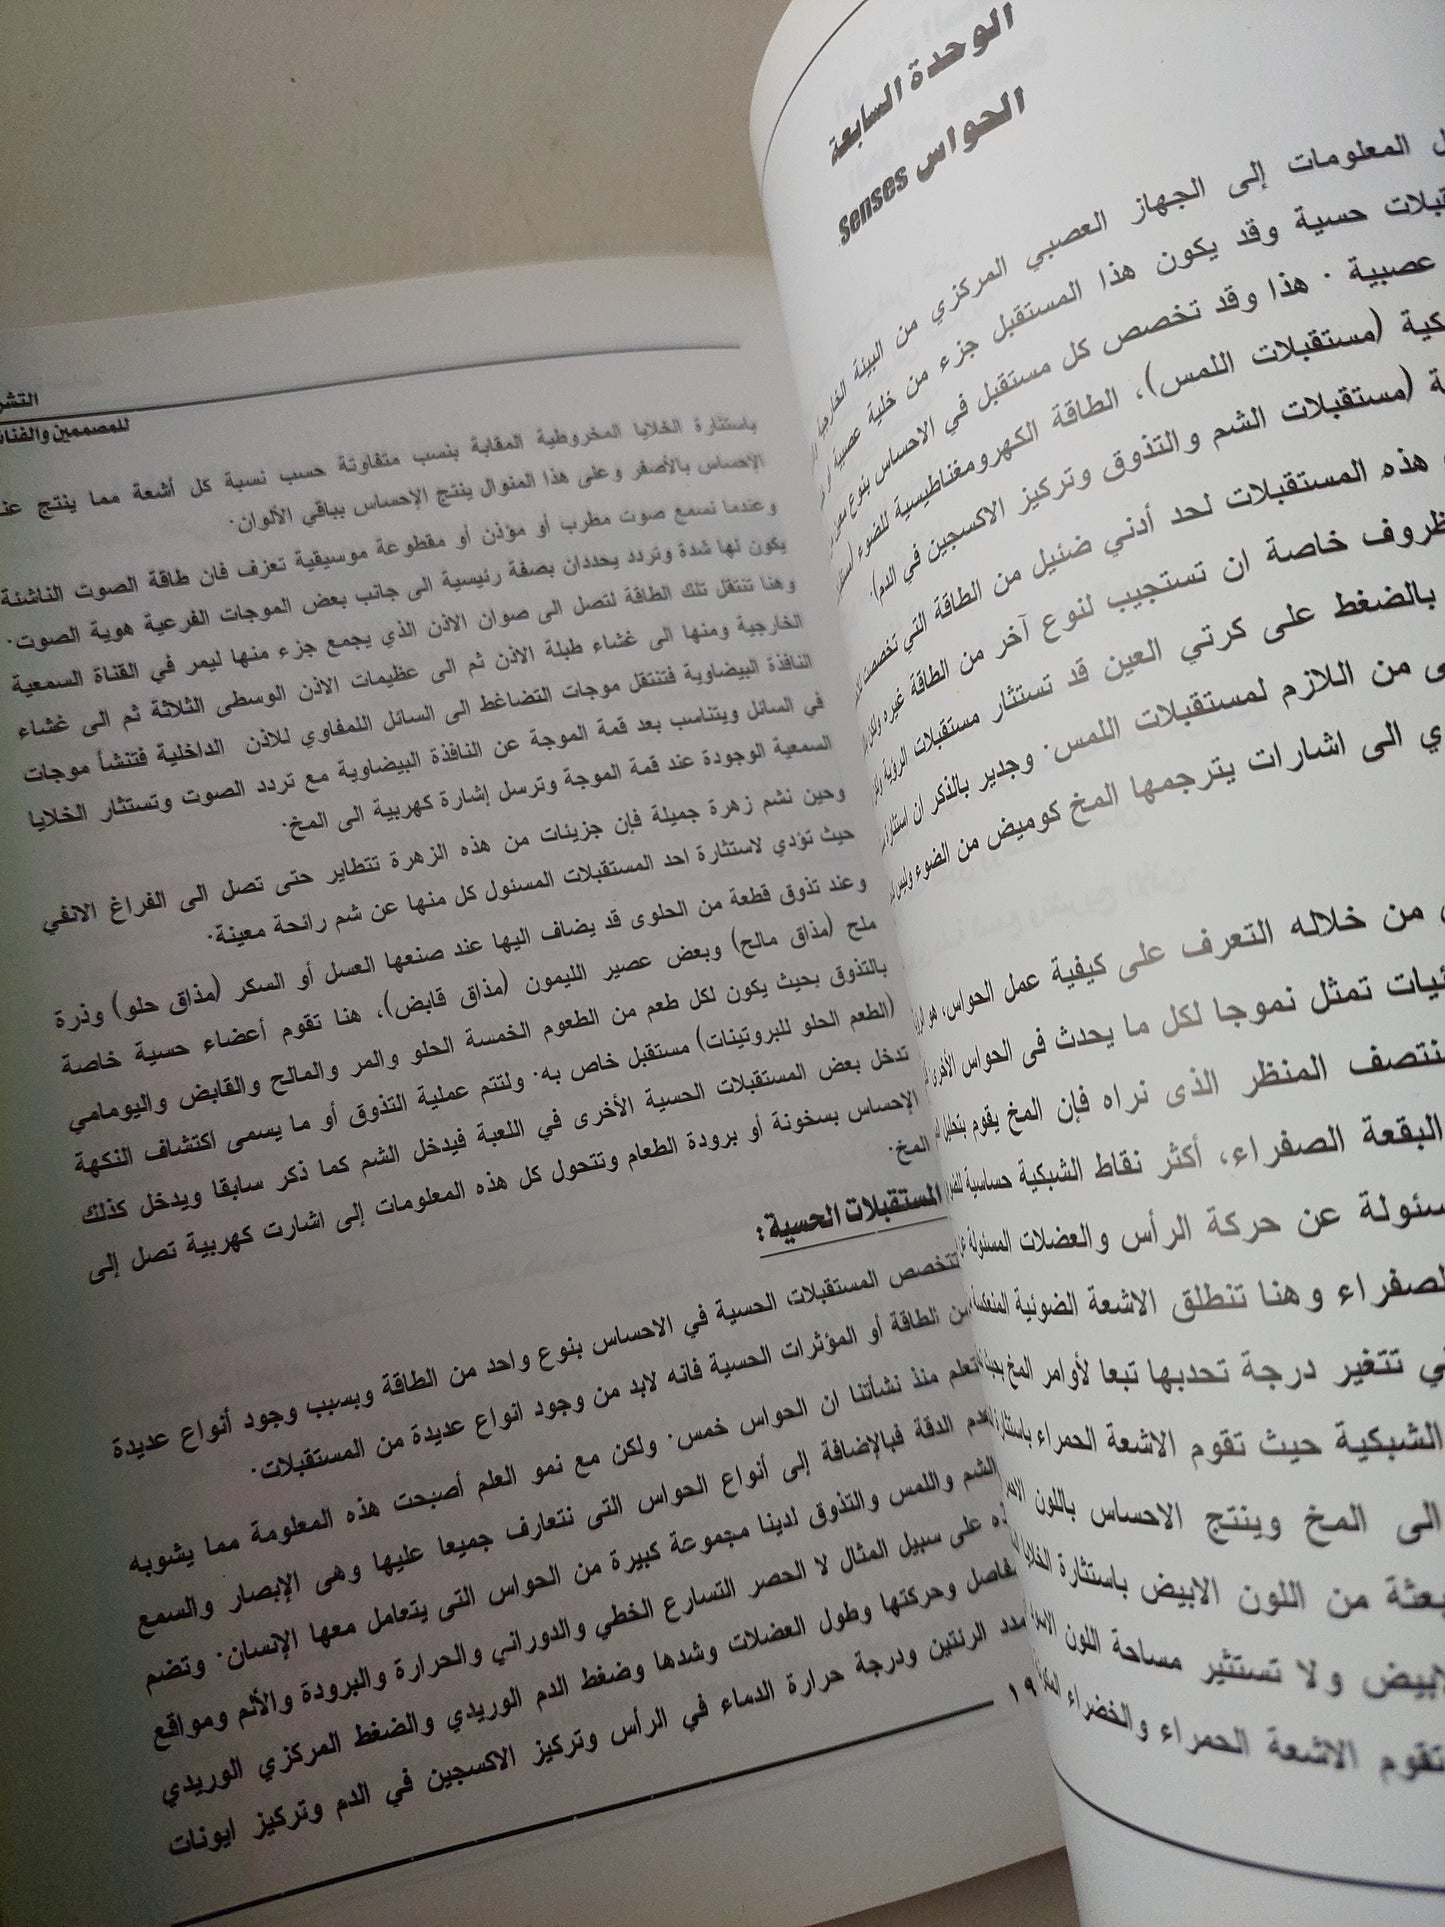 الوحدة السابعة
الحواس Senses
المعلومات إلى الجهاز العصبي المركزي من البيئة الخارجية
حسية وقد يكون هذا المستقبل جزء من خلية عصبية أو
عصبية . هذا وقد تخصص كل مستقبل في الاحساس بنوع معين
(مستقبلات اللمس)، الطاقة الكهرومغناطيسية للضوء
(مستقبلات الشم والتذوق وتركيز الاكسجين في الدم).
هذه المستقبلات لحد أدني ضئيل من الطاقة التي تخصصت
ظروف خاصة ان تستجيب لنوع آخر من الطاقة غيره ولكن
بالضغط على كرتي العين قد تستثار مستقبلات الرؤية
من اللازم لمستقبلات اللمس. وجدير بالذكر ان استثارة
الى اشارات يترجمها المخ كوميض من الضوء وليس
من خلاله التعرف على كيفية عمل الحواس، هو
تمثل نموجا لكل ما يحدث فى الحواس الأخرى
المنظر الذى نراه فإن المخ يقوم بتحليل
البقعة الصفراء، أكثر نقاط الشبكية حساسية
عن حركة الرأس والعضلات المسئولة
وهنا تنطلق الاشعة الضوئية المنعكسة
تتغير درجة تحدبها تبعا لأوامر المخ
الشبكية حيث تقوم الاشعة الحمراء باستثارة
الى المخ وينتج الاحساس باللون
من اللون الابيض باستثارة الخلايا
ولا تستثير مساحة اللون
تقوم الاشعة الحمراء والخضراء
للمصممين
باستثارة الخلايا المخروطية المقابة بنسب متفاوتة حسب نسبة كل أشعة مما ينتج
الإحساس بالأصفر وعلى هذا المنوال ينتج الإحساس بباقي الألوان.
وعندما نسمع صوت مطرب أو مؤذن أو مقطوعة موسيقية تعزف فان طاقة الصوت الناشئة
يكون لها شدة وتردد يحددان بصفة رئيسية الى جانب بعض الموجات الفرعية هوية الصوت.
وهنا تنتقل تلك الطاقة لتصل الى صوان الاذن الذي يجمع جزء منها ليمر في القناة السمعية
الخارجية ومنها الى غشاء طبلة الاذن ثم الى عظيمات الاذن الوسطى الثلاثة ثم الى غشاء
النافذة البيضاوية فتنتقل موجات التضاغط الى السائل اللمفاوي للاذن الداخلية فتنشأ موجات
في السائل ويتناسب بعد قمة الموجة عن النافذة البيضاوية مع تردد الصوت وتستثار الخلايا
السمعية الوجودة عند قمة الموجة وترسل إشارة كهربية الى المخ.
وحين نشم زهرة جميلة فإن جزيئات من هذه الزهرة تتطاير حتى تصل الى الفراغ الانفي
حيث تؤدي لاستثارة احد المستقبلات المسئول كل منها عن شم رائحة معينة.
وعند تذوق قطعة من الحلوى قد يضاف اليها عند صنعها العسل أو السكر (مذاق حلو) وذرة
ملح (مذاق مالح) وبعض عصير الليمون (مذاق قابض)، هنا تقوم أعضاء حسية خاصة
بالتذوق بحيث يكون لكل طعم من الطعوم الخمسة الحلو والمر والمالح والقابض واليومامي
(الطعم الحلو للبروتينات) مستقبل خاص به. ولتتم عملية التذوق أو ما يسمى اكتشاف النكهة
تدخل بعض المستقبلات الحسية الأخرى في اللعبة فيدخل الشم كما ذكر سابقا ويدخل كذلك
الإحساس بسخونة أو برودة الطعام وتتحول كل هذه المعلومات إلى اشارت كهربية تصل إلى
المخ.
المستقبلات الحسية :
تتخصص المستقبلات الحسية في الاحساس بنوع واحد من الطاقة وبسبب وجود أنواع عديدة
من الطاقة أو المؤثرات الحسية فانه لابد من وجود انواع عديدة من المستقبلات.
تعلم منذ نشأتنا ان الحواس خمس. ولكن مع نمو العلم أصبحت هذه المعلومة مما يشوبه
عدم الدقة فبالإضافة إلى أنواع الحواس التى نتعارف جميعا عليها وهى الإبصار والسمع
والشم واللمس والتذوق لدينا مجموعة كبيرة من الحواس التى يتعامل معها الإنسان. وتضم
على سبيل المثال لا الحصر التسارع الخطي والدوراني والحرارة والبرودة والألم ومواقع
وحركتها وطول العضلات وشدها وضغط الدم الوريدي والضغط المركزي الوريدي
الرئتين ودرجة حرارة الدماء في الرأس وتركيز الاكسجين في الدم وتركيز ايونات